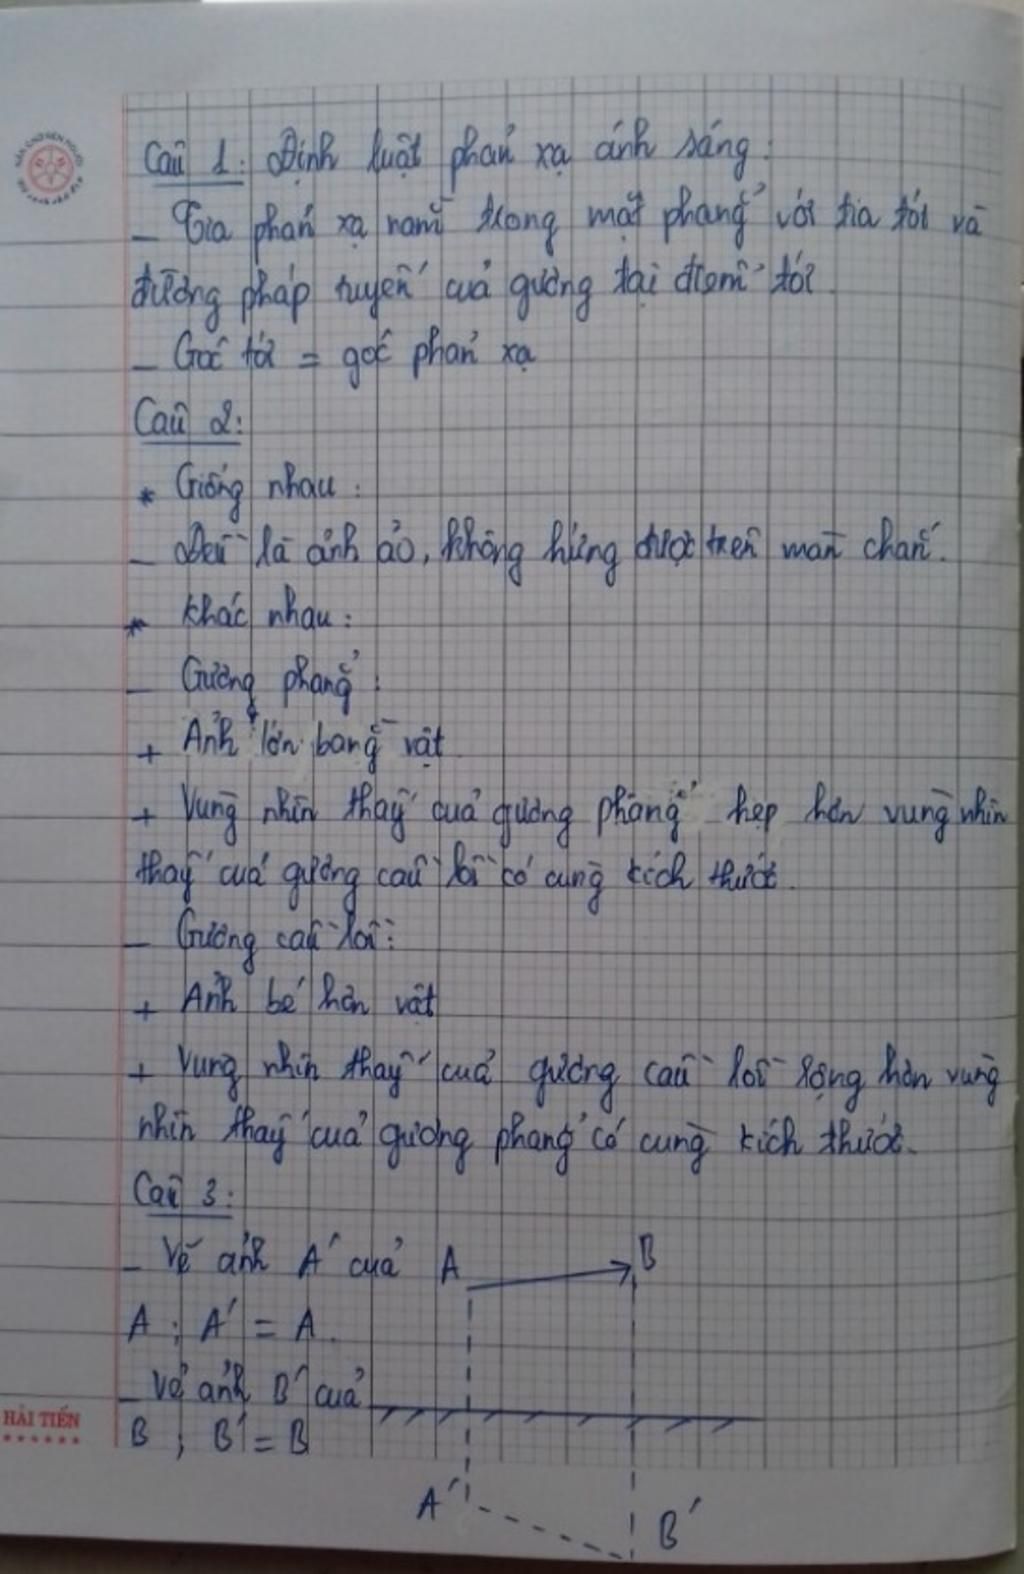 Câu 1: Định luật phản xạ ánh sáng:
- Tia phản xạ nằm trong mặt phẳng với tia tới và
đường pháp tuyến của gương tại điểm tới.
- Góc tới = góc phản xạ
Câu 2:
* Giống nhau:
- Đều là ảnh ảo, không hứng được trên màn chắn.
* Khác nhau:
- Gương phẳng:
+ Ảnh lớn bằng vật.
+ Vùng nhìn thấy của gương phẳng hẹp hơn vùng nhìn
thấy của gương cầu lồi có cùng kích thước.
- Gương cầu lồi:
+ Ảnh bé hơn vật
+ Vùng nhìn thấy của gương cầu lồi rộng hơn vùng
nhìn thấy của gương phẳng có cùng kích thước.
Câu 3:
- Vẽ ảnh A' của A B
A ; A' = A.
- Vẽ ảnh B' của
HẢI TIẾN
B ; B' = B
A' B'